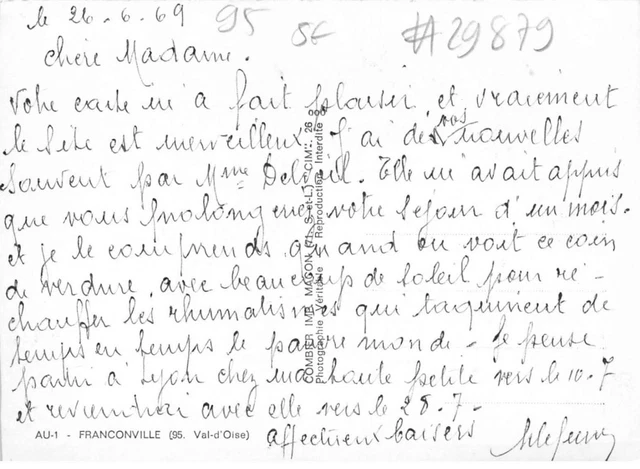 le 26.6.69 95 5F #29879
chère Madame.
Votre carte m'a fait plaisir et vraiement
le site est merveilleux J'ai de vos nouvelles
souvent par Mme Elle m'avait appris
que vous prolongiez votre séjour d'un mois.
et je le comprends quand on voit ce coin
de verdure. avec beaucoup de soleil pour ré-
chauffer les rhumatismes qui taquinent de
temps en temps le pauvre monde - Je pense
partir à Lyon chez ma petite vers le 10-7
et reviendrai avec elle vers le 28-7-
affectueux baisers
AU-1 - FRANCONVILLE (95. Val-d'Oise)
COMBIER IMP. MACON (71. S-et-L) "CIM". 26 900
Photographie véritable Reproduction interdite